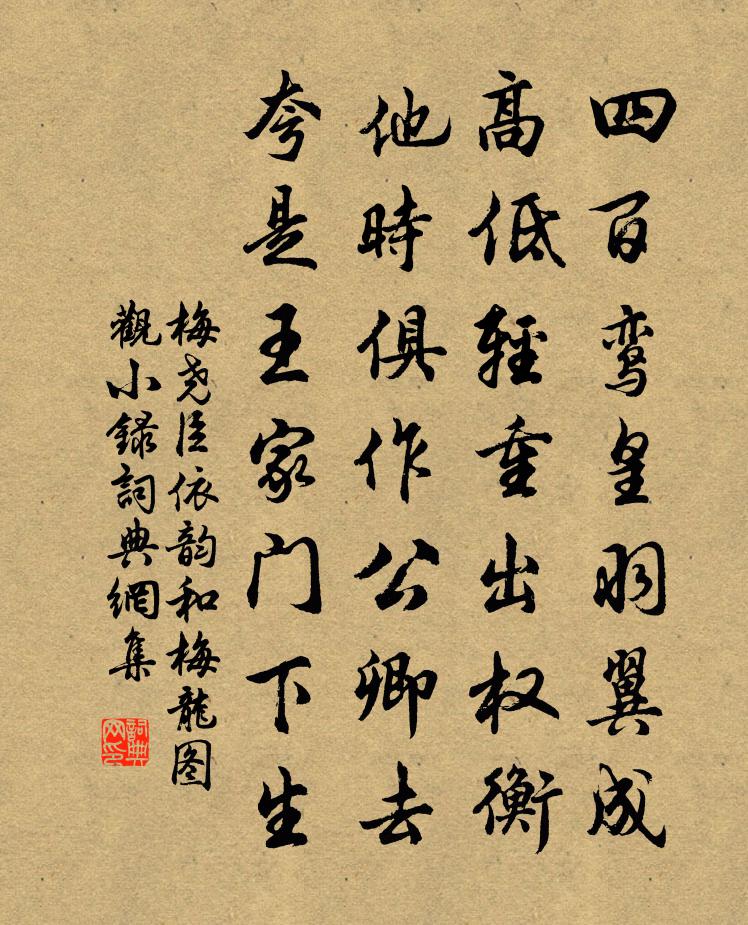 四百鸾皇羽翼成
高低輕重出权衡
他時俱作公卿去
夸是王家门下生
梅尧臣依韵和梅龍图
觀小録詞典網集
詞典网印